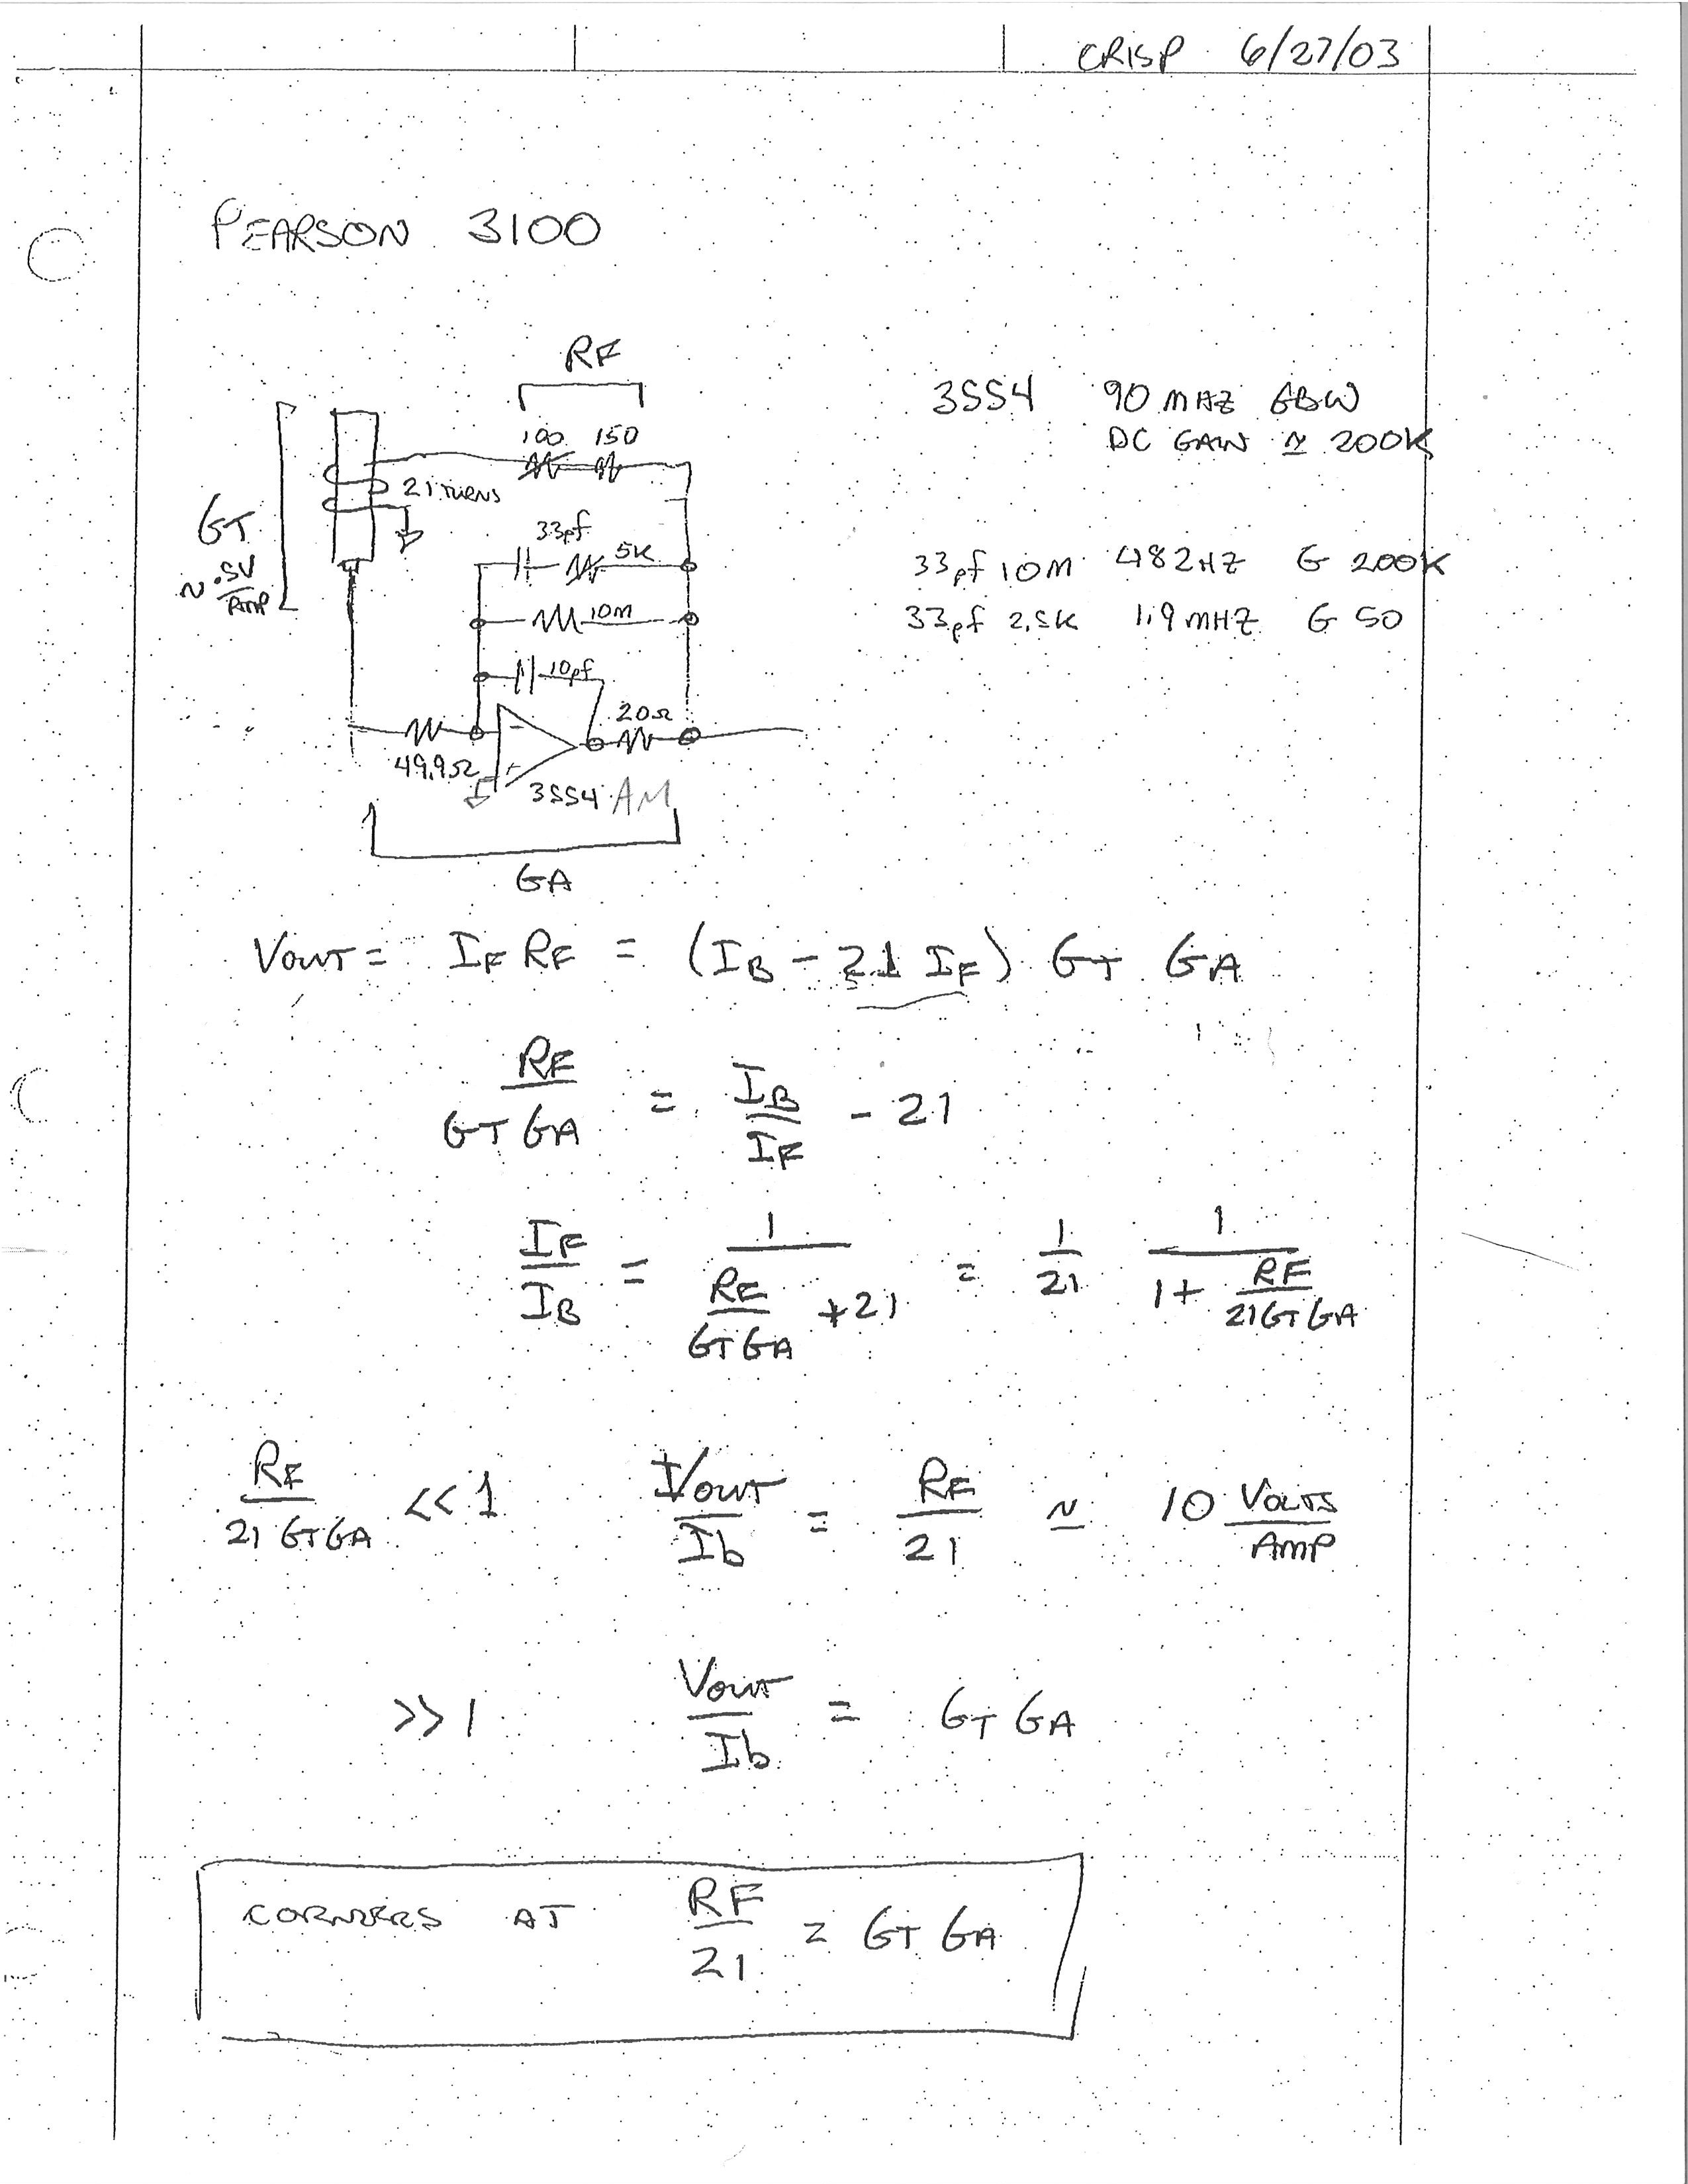 CRISP 6/27/03
PEARSON 3100
RF
100 150
21 TURNS
GT
~ .5V/AMP
33pf 5K
10M
10pf
20Ω
49.9Ω
- +
3554 AM
GA
3554 90 MHZ GBW
DC GAIN ≃ 200K
33pf 10M 482HZ G 200K
33pf 2.5K 1.9MHZ G 50
VOUT = IF RF = (IB - 21 IF) GT GA
RF/GT GA = IB/IF - 21
IF/IB = 1/(RF/GT GA + 21) = 1/21 1/(1 + RF/21 GT GA)
RF/21 GT GA << 1 VOUT/Ib = RF/21 ≃ 10 VOLTS/AMP
>> 1 VOUT/Ib = GT GA
CORNERS AT RF/21 = GT GA